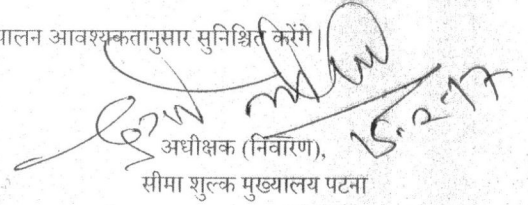 पालन आवश्यकतानुसार सुनिश्चित करेंगे।
15.2.17
अधीक्षक (निवारण),
सीमा शुल्क मुख्यालय पटना